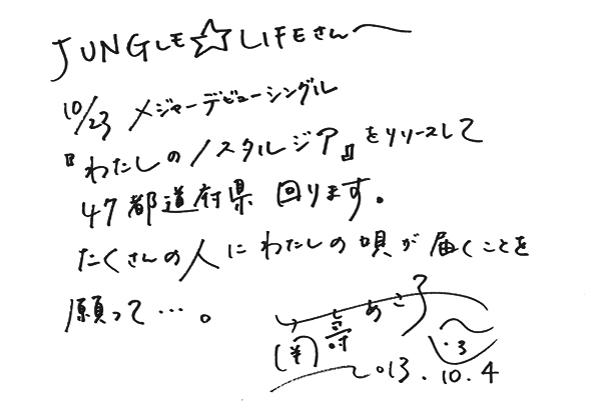 JUNGLE☆LIFEさん〜
10/23 メジャーデビューシングル
『わたしのノスタルジア』をリリースして
47都道府県 回ります。
たくさんの人にわたしの唄が届くことを
願って…。
2013.10.4